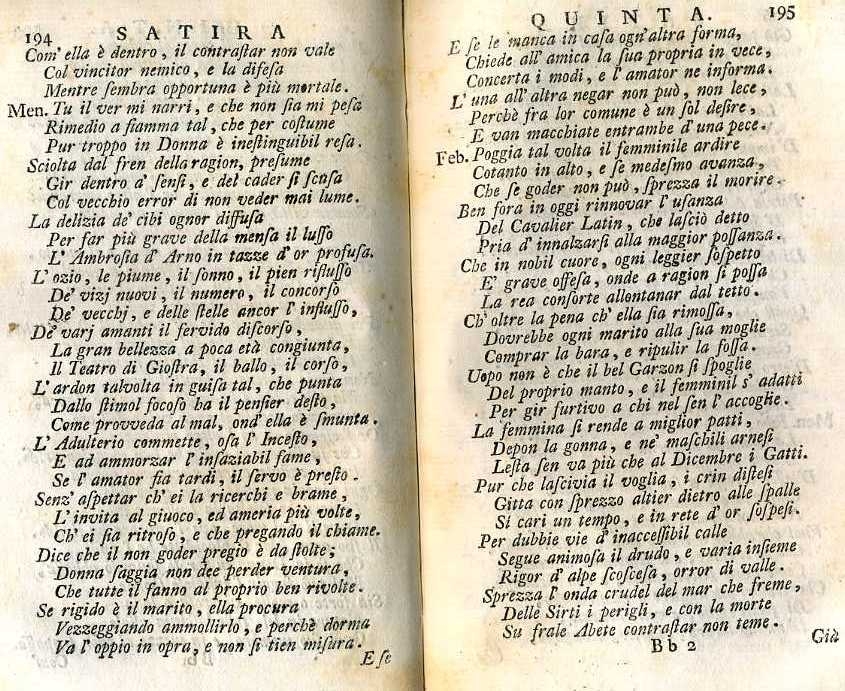 194 SATIRA
Com' ella è dentro, il contraſtar non vale
Col vincitor nemico, e la difeſa
Mentre ſembra opportuna è più mortale.
Men. Tu il ver mi narri, e che non ſia mi peſa
Rimedio a fiamma tal, che per coſtume
Pur troppo in Donna è ineſtinguibil reſa.
Sciolta dal fren della ragion, preſume
Gir dentro a' ſenſi, e del cader ſi ſcuſa
Col vecchio error di non veder mai lume.
La delizia de' cibi ognor diffuſa
Per far più grave della menſa il luſſo
L' Ambroſia d' Arno in tazze d' or profuſa.
L' ozio, le piume, il ſonno, il pien rifluſſo
De' vizj nuovi, il numero, il concorſo
De' vecchj, e delle ſtelle ancor l' influſſo,
De' varj amanti il fervido diſcorſo,
La gran bellezza a poca età congiunta,
Il Teatro di Gioſtra, il ballo, il corſo,
L' ardon talvolta in guiſa tal, che punta
Dallo ſtimol focoſo ha il penſier deſto,
Come provveda al mal, ond' ella è ſmunta.
L' Adulterio commette, oſa l' Inceſto,
E ad ammorzar l' inſaziabil fame,
Se l' amator fia tardi, il ſervo è preſto.
Senz' aſpettar ch' ei la ricerchi e brame,
L' invita al giuoco, ed ameria più volte,
Ch' ei ſia ritroſo, e che pregando il chiame.
Dice che il non goder pregio è da ſtolte;
Donna ſaggia non dee perder ventura,
Che tutte il fanno al proprio ben rivolte.
Se rigido è il marito, ella procura
Vezzeggiando ammollirlo, e perchè dorma
Va l' oppio in opra, e non ſi tien miſura.
E ſe
QUINTA. 195
E ſe le manca in caſa ogn' altra forma,
Chiede all' amica la ſua propria in vece,
Concerta i modi, e l' amator ne informa.
L' una all' altra negar non può, non lece,
Perchè fra lor comune è un ſol deſire,
E van macchiate entrambe d' una pece.
Feb. Poggia tal volta il femminile ardire
Cotanto in alto, e ſe medeſmo avanza,
Che ſe goder non può, ſprezza il morire.
Ben fora in oggi rinnovar l' uſanza
Del Cavalier Latin, che laſciò detto
Pria d' innalzarſi alla maggior poſſanza.
Che in nobil cuore, ogni leggier ſoſpetto
E' grave offeſa, onde a ragion ſi poſſa
La rea conſorte allontanar dal tetto.
Ch' oltre la pena ch' ella ſia rimoſſa,
Dovrebbe ogni marito alla ſua moglie
Comprar la bara, e ripulir la foſſa.
Uopo non è che il bel Garzon ſi ſpoglie
Del proprio manto, e il femminil s' adatti
Per gir furtivo a chi nel ſen l' accoglie.
La femmina ſi rende a miglior patti,
Depon la gonna, e ne' maſchili arneſi
Leſta ſen va più che al Dicembre i Gatti.
Pur che laſcivia il voglia, i crin diſteſi
Gitta con ſprezzo altier dietro alle ſpalle
Sì cari un tempo, e in rete d' or ſoſpeſi.
Per dubbie vie d' inacceſſibil calle
Segue animoſa il drudo, e varia inſieme
Rigor d' alpe ſcoſceſa, orror di valle.
Sprezza l' onda crudel del mar che freme,
Delle Sirti i perigli, e con la morte
Su frale Abete contraſtar non teme.
Bb 2 Già